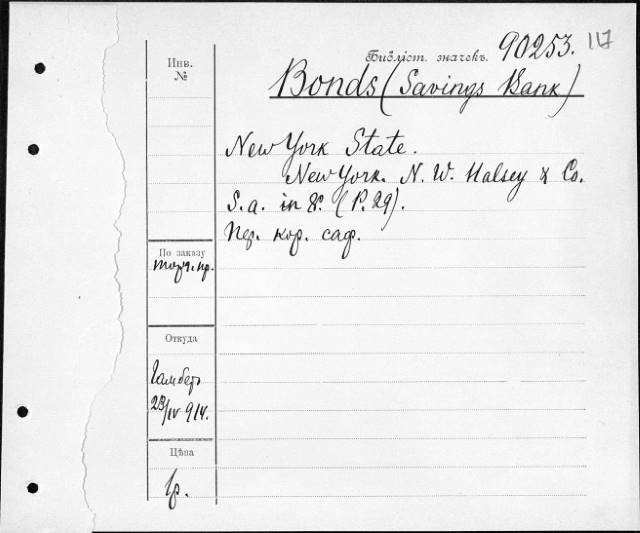 Инв.
№
Библіот. значекъ. 90253. 117
Bonds (Savings Bank)
New York State.
New York. N. W. Halsey & Co.
S. a. in 8º. (P. 29).
Пер. кор. саф.
По заказу
Откуда
Гамбер
23/IV 914.
Цѣна
1р.